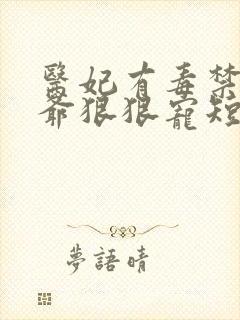 醫妃有毒禁
爺狠狠寵短
夢語晴